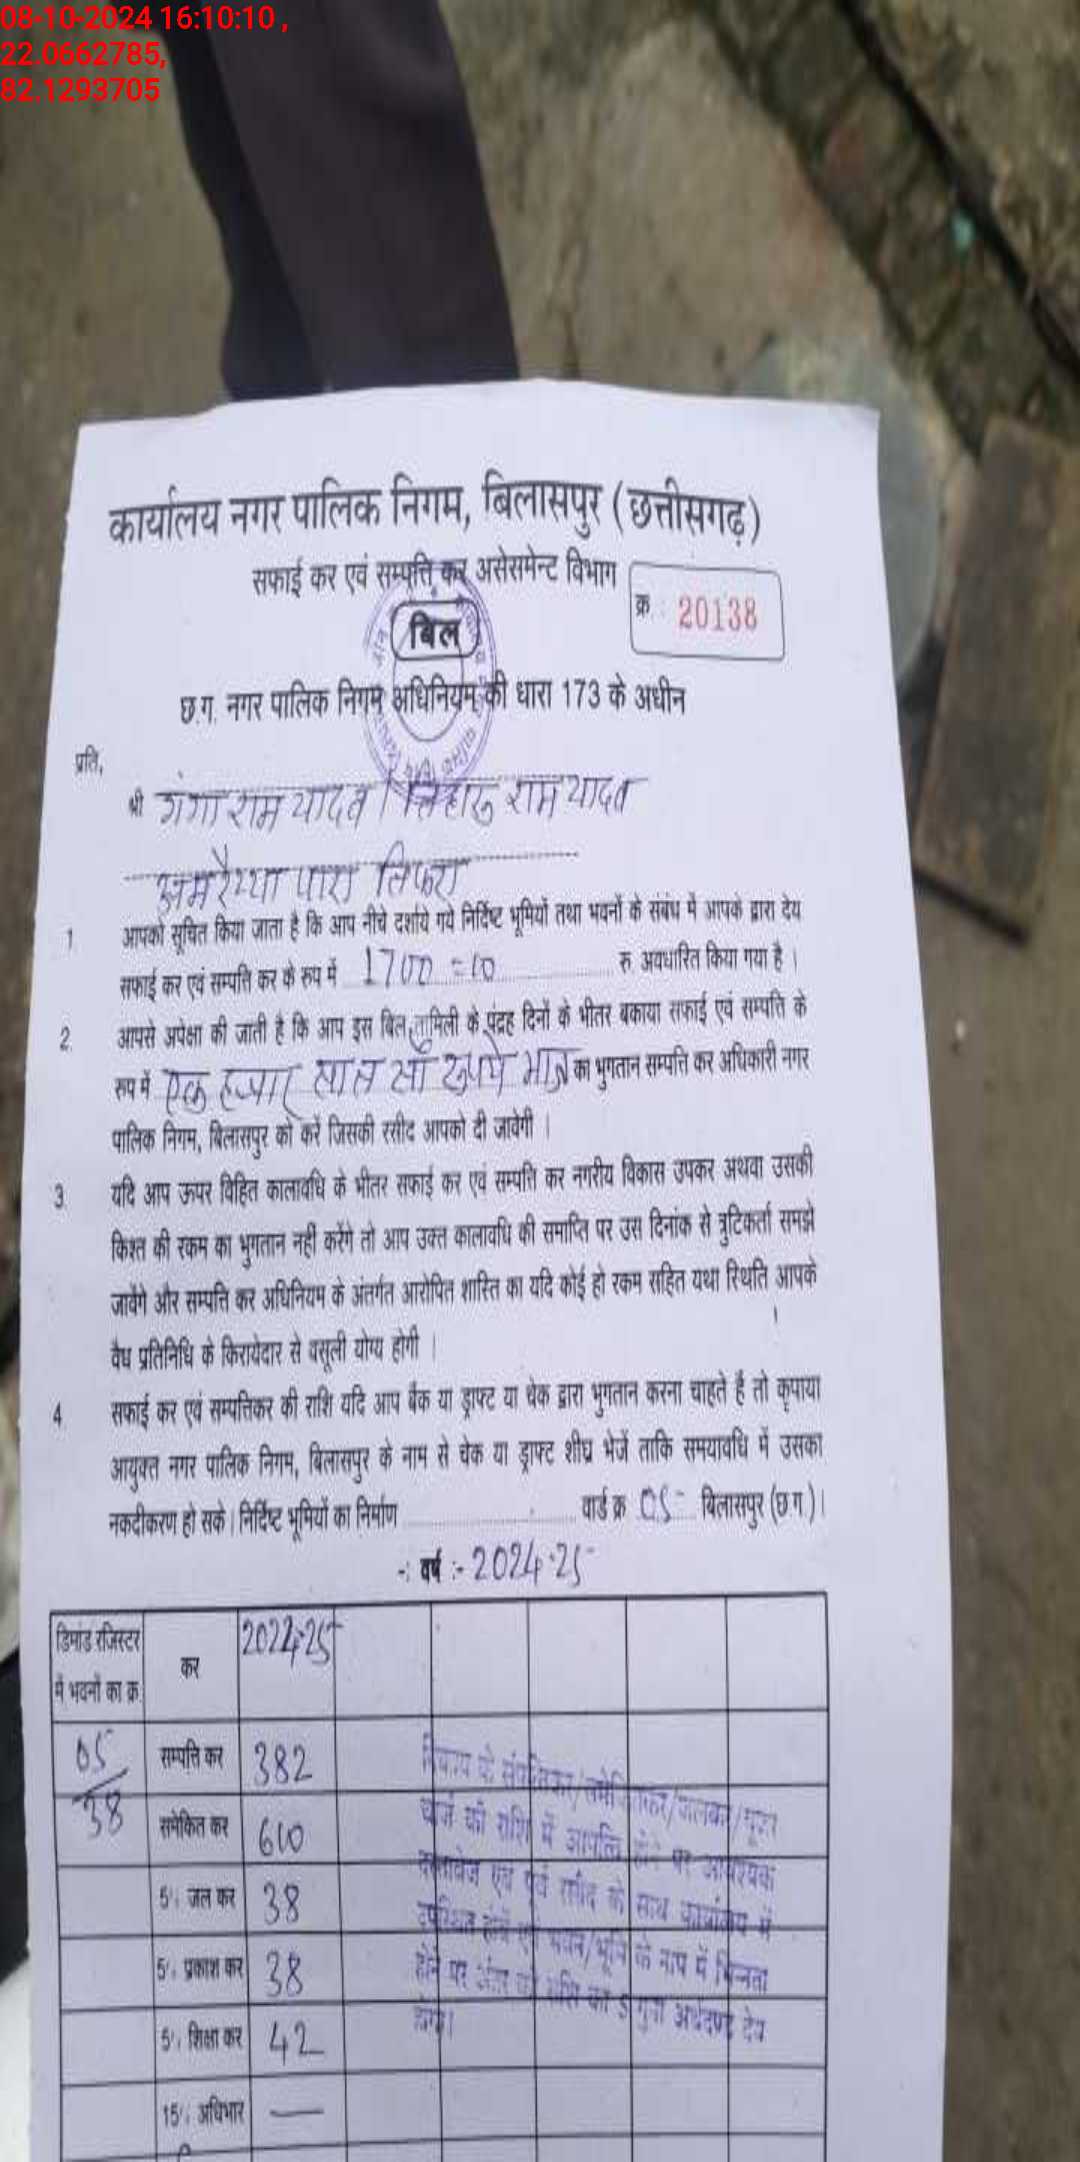 08-10-2024 16:10:10 ,
22.0662785,
82.1293705
कार्यालय नगर पालिक निगम, बिलासपुर (छत्तीसगढ़)
सफाई कर एवं सम्पत्ति कर असेसमेन्ट विभाग
क्र. 20138
बिल
छ.ग. नगर पालिक निगम अधिनियम की धारा 173 के अधीन
प्रति,
श्री गंगा राम यादव / राम यादव
अमरैय्या पारा तिफरा
1 आपको सूचित किया जाता है कि आप नीचे दर्शाये गये निर्दिष्ट भूमियों तथा भवनों के संबंध में आपके द्वारा देय
सफाई कर एवं सम्पति कर के रूप में 1700 = 10 रु. अवधारित किया गया है ।
2. आपसे अपेक्षा की जाती है कि आप इस बिल तामिली के पंद्रह दिनों के भीतर बकाया सफाई एवं सम्पति के
रूप में एक हजार सात सौ रूपये मात्र का भुगतान सम्पत्ति कर अधिकारी नगर
पालिक निगम, बिलासपुर को करें जिसकी रसीद आपको दी जावेगी ।
3. यदि आप ऊपर विहित कालावधि के भीतर सफाई कर एवं सम्पत्ति कर नगरीय विकास उपकर अथवा उसकी
किश्त की रकम का भुगतान नहीं करेंगे तो आप उक्त कालावधि की समाप्ति पर उस दिनांक से त्रुटिकर्ता समझे
जावेंगे और सम्पत्ति कर अधिनियम के अंतर्गत आरोपित शास्ति का यदि कोई हो रकम सहित यथा स्थिति आपके
वैध प्रतिनिधि के किरायेदार से वसूली योग्य होगी ।
4 सफाई कर एवं सम्पत्तिकर की राशि यदि आप बैंक या ड्राफ्ट या चेक द्वारा भुगतान करना चाहते हैं तो कृपाया
आयुक्त नगर पालिक निगम, बिलासपुर के नाम से चेक या ड्राफ्ट शीघ्र भेजें ताकि समयावधि में उसका
नकदीकरण हो सके। निर्दिष्ट भूमियों का निर्माण वार्ड क्र 05 बिलासपुर (छ.ग.)।
-: वर्ष :- 2024-25
डिमांड रजिस्टर में भवनों का क्र. कर 2024-25
05/38 सम्पत्ति कर 382
समेकित कर 600
5% जल कर 38
5% प्रकाश कर 38
5% शिक्षा कर 42
15% अधिभार —
के संपत्तिकर/समेकितकर/जलकर/
चार्ज की राशि में आपत्ति होने पर आवश्यक
दस्तावेज एवं पूर्व रसीद के साथ कार्यालय में
उपस्थित होवें एवं भवन/भूमि के नाप में भिन्नता
होने पर अंतर की राशि का 5 गुना अर्थदण्ड देय
होगा।